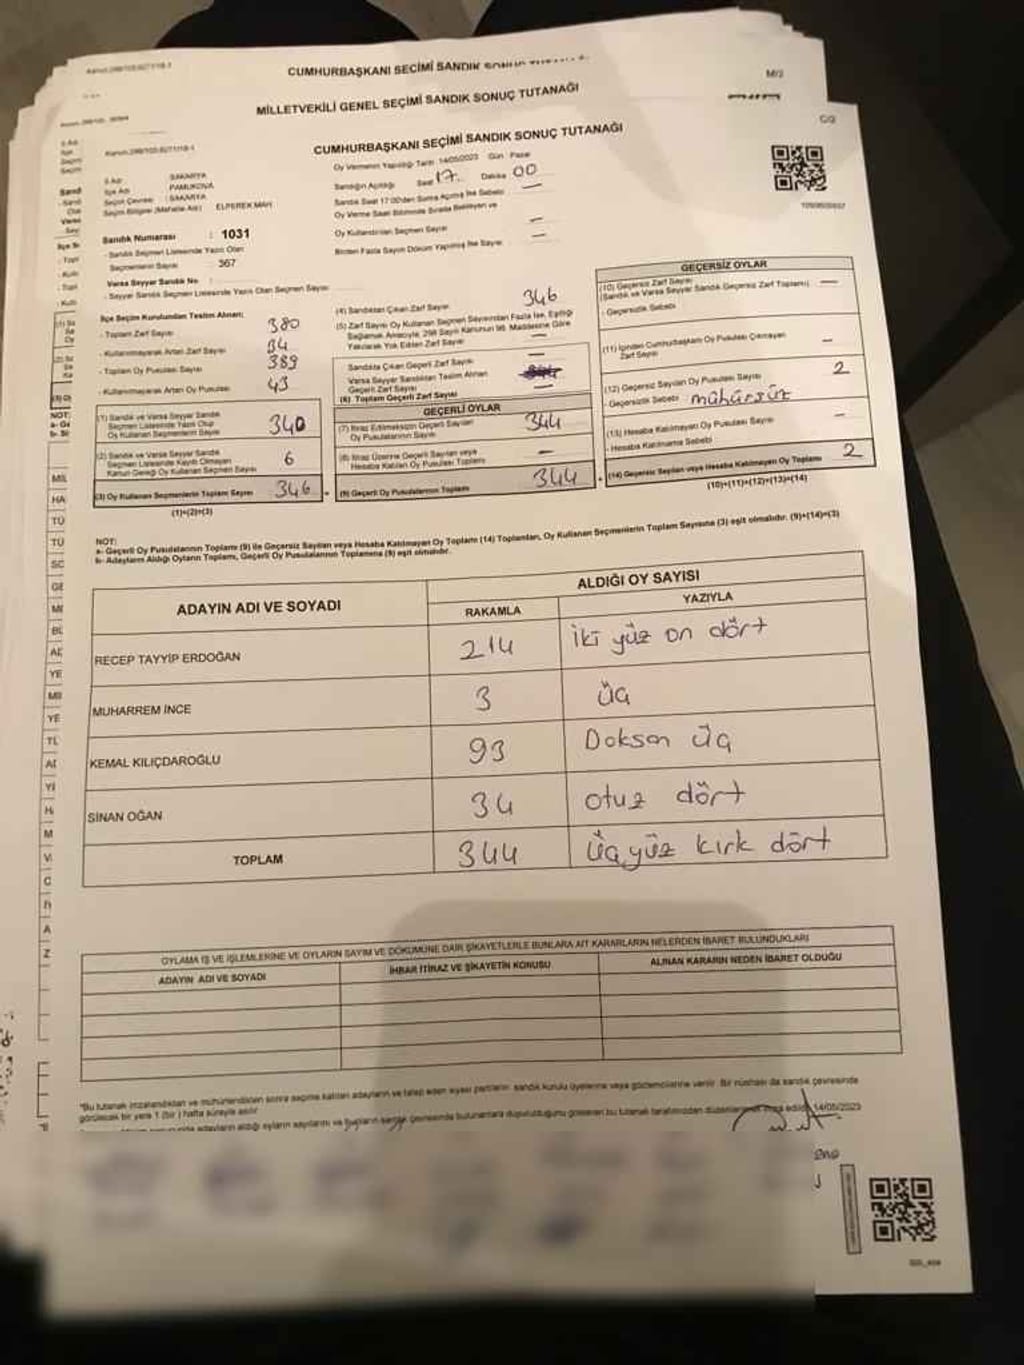 CUMHURBAŞKANI SEÇİMİ SANDIK
MİLLETVEKİLİ GENEL SEÇİMİ SANDIK SONUÇ TUTANAĞI
M/2
CUMHURBAŞKANI SEÇİMİ SANDIK SONUÇ TUTANAĞI
C/2
İl Adı : SAKARYA
İlçe Adı : PAMUKOVA
Seçim Çevresi : SAKARYA
Seçim Bölgesi (Mahalle Adı) : ELPEREK MAH.
Sandık Numarası : 1031
- Sandık Seçmen Listesinde Yazılı Olan
Seçmenlerin Sayısı : 367
Varsa Seyyar Sandık No :
- Seyyar Sandık Seçmen Listesinde Yazılı Olan Seçmen Sayısı:
Oy Vermenin Yapıldığı Tarih: 14/05/2023 Gün: Pazar
Sandığın Açıldığı Saat 17 Dakika 00
Sandık Saat 17:00'den Sonra Açılmış İse Sebebi —
Oy Verme Saati Bitiminde Sırada Bekleyen ve
Oy Kullandırılan Seçmen Sayısı —
Birden Fazla Sayım Döküm Yapılmış İse Sayısı —
İlçe Seçim Kurulundan Teslim Alınan;
- Toplam Zarf Sayısı 380
- Kullanılmayarak Artan Zarf Sayısı 34
- Toplam Oy Pusulası Sayısı 389
- Kullanılmayarak Artan Oy Pusulası 43
(1) Sandık ve Varsa Seyyar Sandık
Seçmen Listesinde Yazılı Olup
Oy Kullanan Seçmenlerin Sayısı 340
(2) Sandık ve Varsa Seyyar Sandık
Seçmen Listesinde Kayıtlı Olmayan
Kanun Gereği Oy Kullanan Seçmen Sayısı 6
(3) Oy Kullanan Seçmenlerin Toplam Sayısı 346
(1)+(2)=(3)
(4) Sandıktan Çıkan Zarf Sayısı 346
(5) Zarf Sayısı Oy Kullanan Seçmen Sayısından Fazla İse, Eşitliği
Sağlamak Amacıyla; 298 Sayılı Kanunun 98. Maddesine Göre
Yakılarak Yok Edilen Zarf Sayısı —
Sandıkta Çıkan Geçerli Zarf Sayısı —
Varsa Seyyar Sandıktan Teslim Alınan
Geçerli Zarf Sayısı
(6) Toplam Geçerli Zarf Sayısı —
GEÇERLİ OYLAR
(7) İtiraz Edilmeksizin Geçerli Sayılan
Oy Pusulalarının Sayısı 344
(8) İtiraz Üzerine Geçerli Sayılan veya
Hesaba Katılan Oy Pusulası Toplamı —
(9) Geçerli Oy Pusulalarının Toplamı 344
GEÇERSİZ OYLAR
(10) Geçersiz Zarf Sayısı
(Sandık ve Varsa Seyyar Sandık Geçersiz Zarf Toplamı) —
- Geçersizlik Sebebi
(11) İçinden Cumhurbaşkanı Oy Pusulası Çıkmayan
Zarf Sayısı —
(12) Geçersiz Sayılan Oy Pusulası Sayısı 2
- Geçersizlik Sebebi mühürsüz
(13) Hesaba Katılmayan Oy Pusulası Sayısı —
- Hesaba Katılmama Sebebi
(14) Geçersiz Sayılan veya Hesaba Katılmayan Oy Toplamı 2
(10)+(11)+(12)+(13)=(14)
NOT:
a- Geçerli Oy Pusulalarının Toplamı (9) ile Geçersiz Sayılan veya Hesaba Katılmayan Oy Toplamı (14) Toplamları, Oy Kullanan Seçmenlerin Toplam Sayısına (3) eşit olmalıdır. (9)+(14)=(3)
b- Adayların Aldığı Oyların Toplamı, Geçerli Oy Pusulalarının Toplamına (9) eşit olmalıdır.
ADAYIN ADI VE SOYADI
ALDIĞI OY SAYISI
RAKAMLA YAZIYLA
RECEP TAYYİP ERDOĞAN 214 iki yüz on dört
MUHARREM İNCE 3 üç
KEMAL KILIÇDAROĞLU 93 Doksan üç
SİNAN OĞAN 34 otuz dört
TOPLAM 344 üç yüz kırk dört
OYLAMA İŞ VE İŞLEMLERİNE VE OYLARIN SAYIM VE DÖKÜMÜNE DAİR ŞİKAYETLERLE BUNLARA AİT KARARLARIN NELERDEN İBARET BULUNDUKLARI
ADAYIN ADI VE SOYADI İHBAR İTİRAZ VE ŞİKAYETİN KONUSU ALINAN KARARIN NEDEN İBARET OLDUĞU
*Bu tutanak imzalandıktan ve mühürlendikten sonra seçime katılan adayların ve talep eden siyasi partilerin sandık kurulu üyelerine veya gözlemcilerine verilir. Bir nüshası da sandık çevresinde
görülecek bir yere 1 (bir) hafta süreyle asılır.
adayların aldığı oyların sayılarını ve bunların sandık çevresinde bulunanlara duyurulduğunu gösteren bu tutanak tarafımızdan 14/05/2023